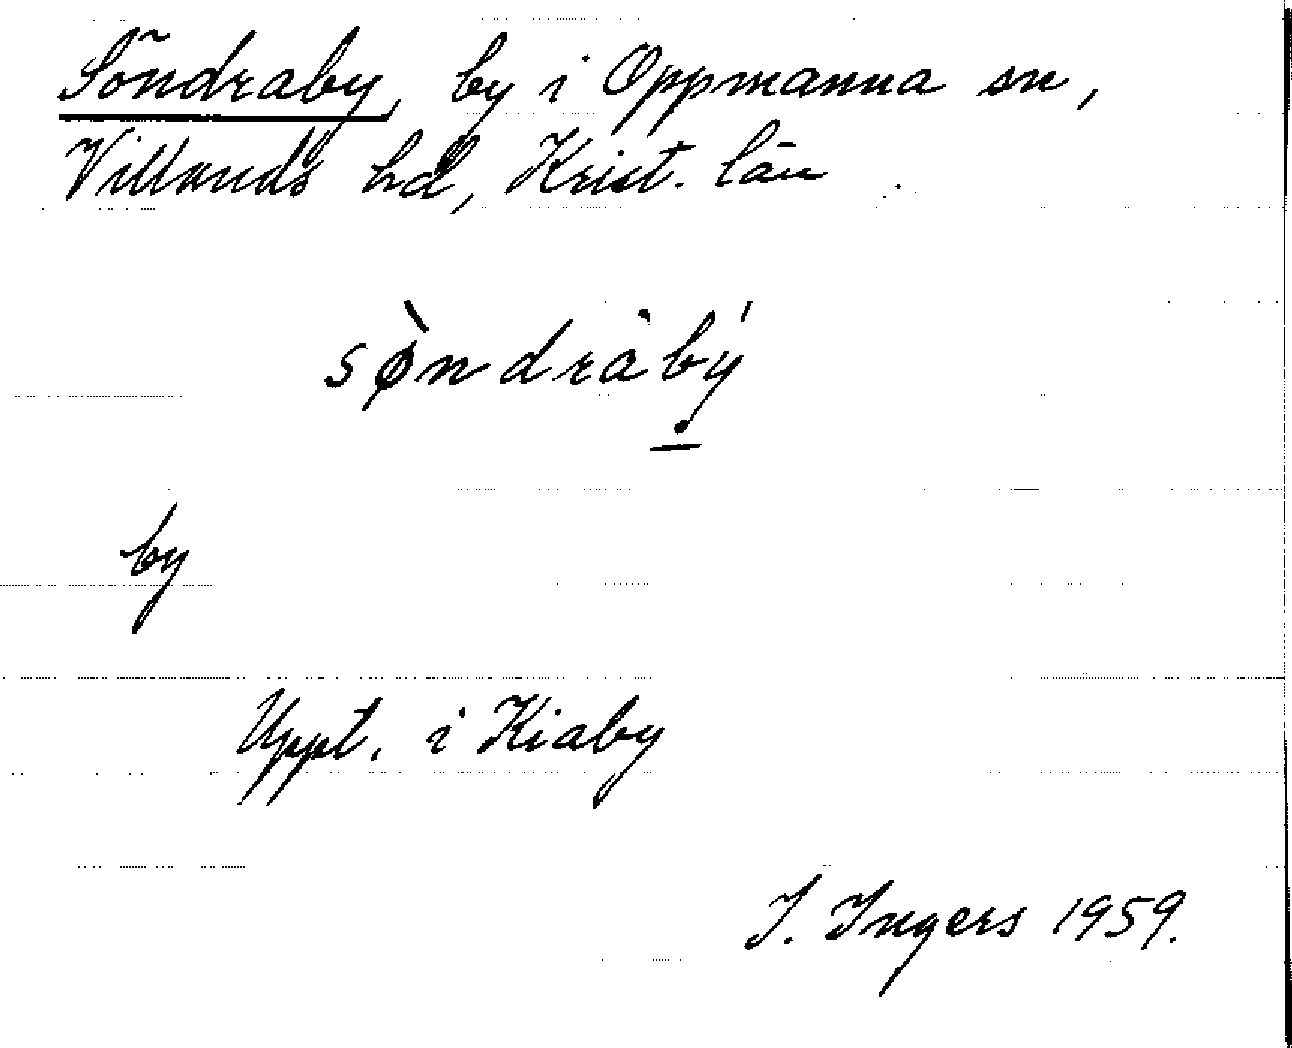 Söndraby, by i Oppmanna sn,
Villands hd, Krist. län
sø̀ndràbý
by
Uppt. i Kiaby
I. Ingers 1959.